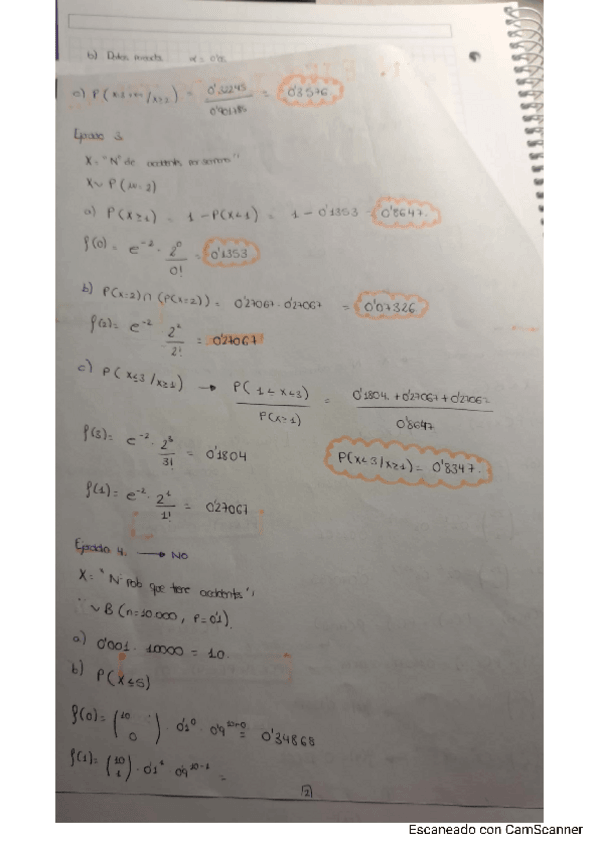 b) Datos
c) P( /x≥2) = 0'32245 / 0'901685 = 0'3576
Ejercicio 3.
X = "Nº de accidentes por semana"
X ~ P(m=2)
a) P(x≥1) = 1 - P(x<1) = 1 - 0'1353 = 0'8647.
f(0) = e⁻² · 2⁰/0! = 0'1353
b) P(x=2) ∩ (P(x=2)) = 0'27067 · 0'27067 = 0'07326
f(2) = e⁻² 2²/2! = 0'27067
c) P(x≤3/x≥1) → P(1≤x≤3)/P(x≥1) = 0'1804 + 0'27067 + 0'27067 / 0'8647
f(3) = e⁻² · 2³/3! = 0'1804
P(x≤3/x≥1) = 0'8347.
f(1) = e⁻² · 2¹/1! = 0'27067
Ejercicio 4. → NO
X = "Nº pob que tiene accidentes"
~ B(n=10000, p=0'1)
a) 0'001 · 10000 = 10.
b) P(x≤5)
f(0) = (10 0) · 0'1⁰ · 0'9¹⁰⁻⁰ = 0'34868
f(1) = (10 1) · 0'1¹ · 0'9¹⁰⁻¹ =
2
Escaneado con CamScanner